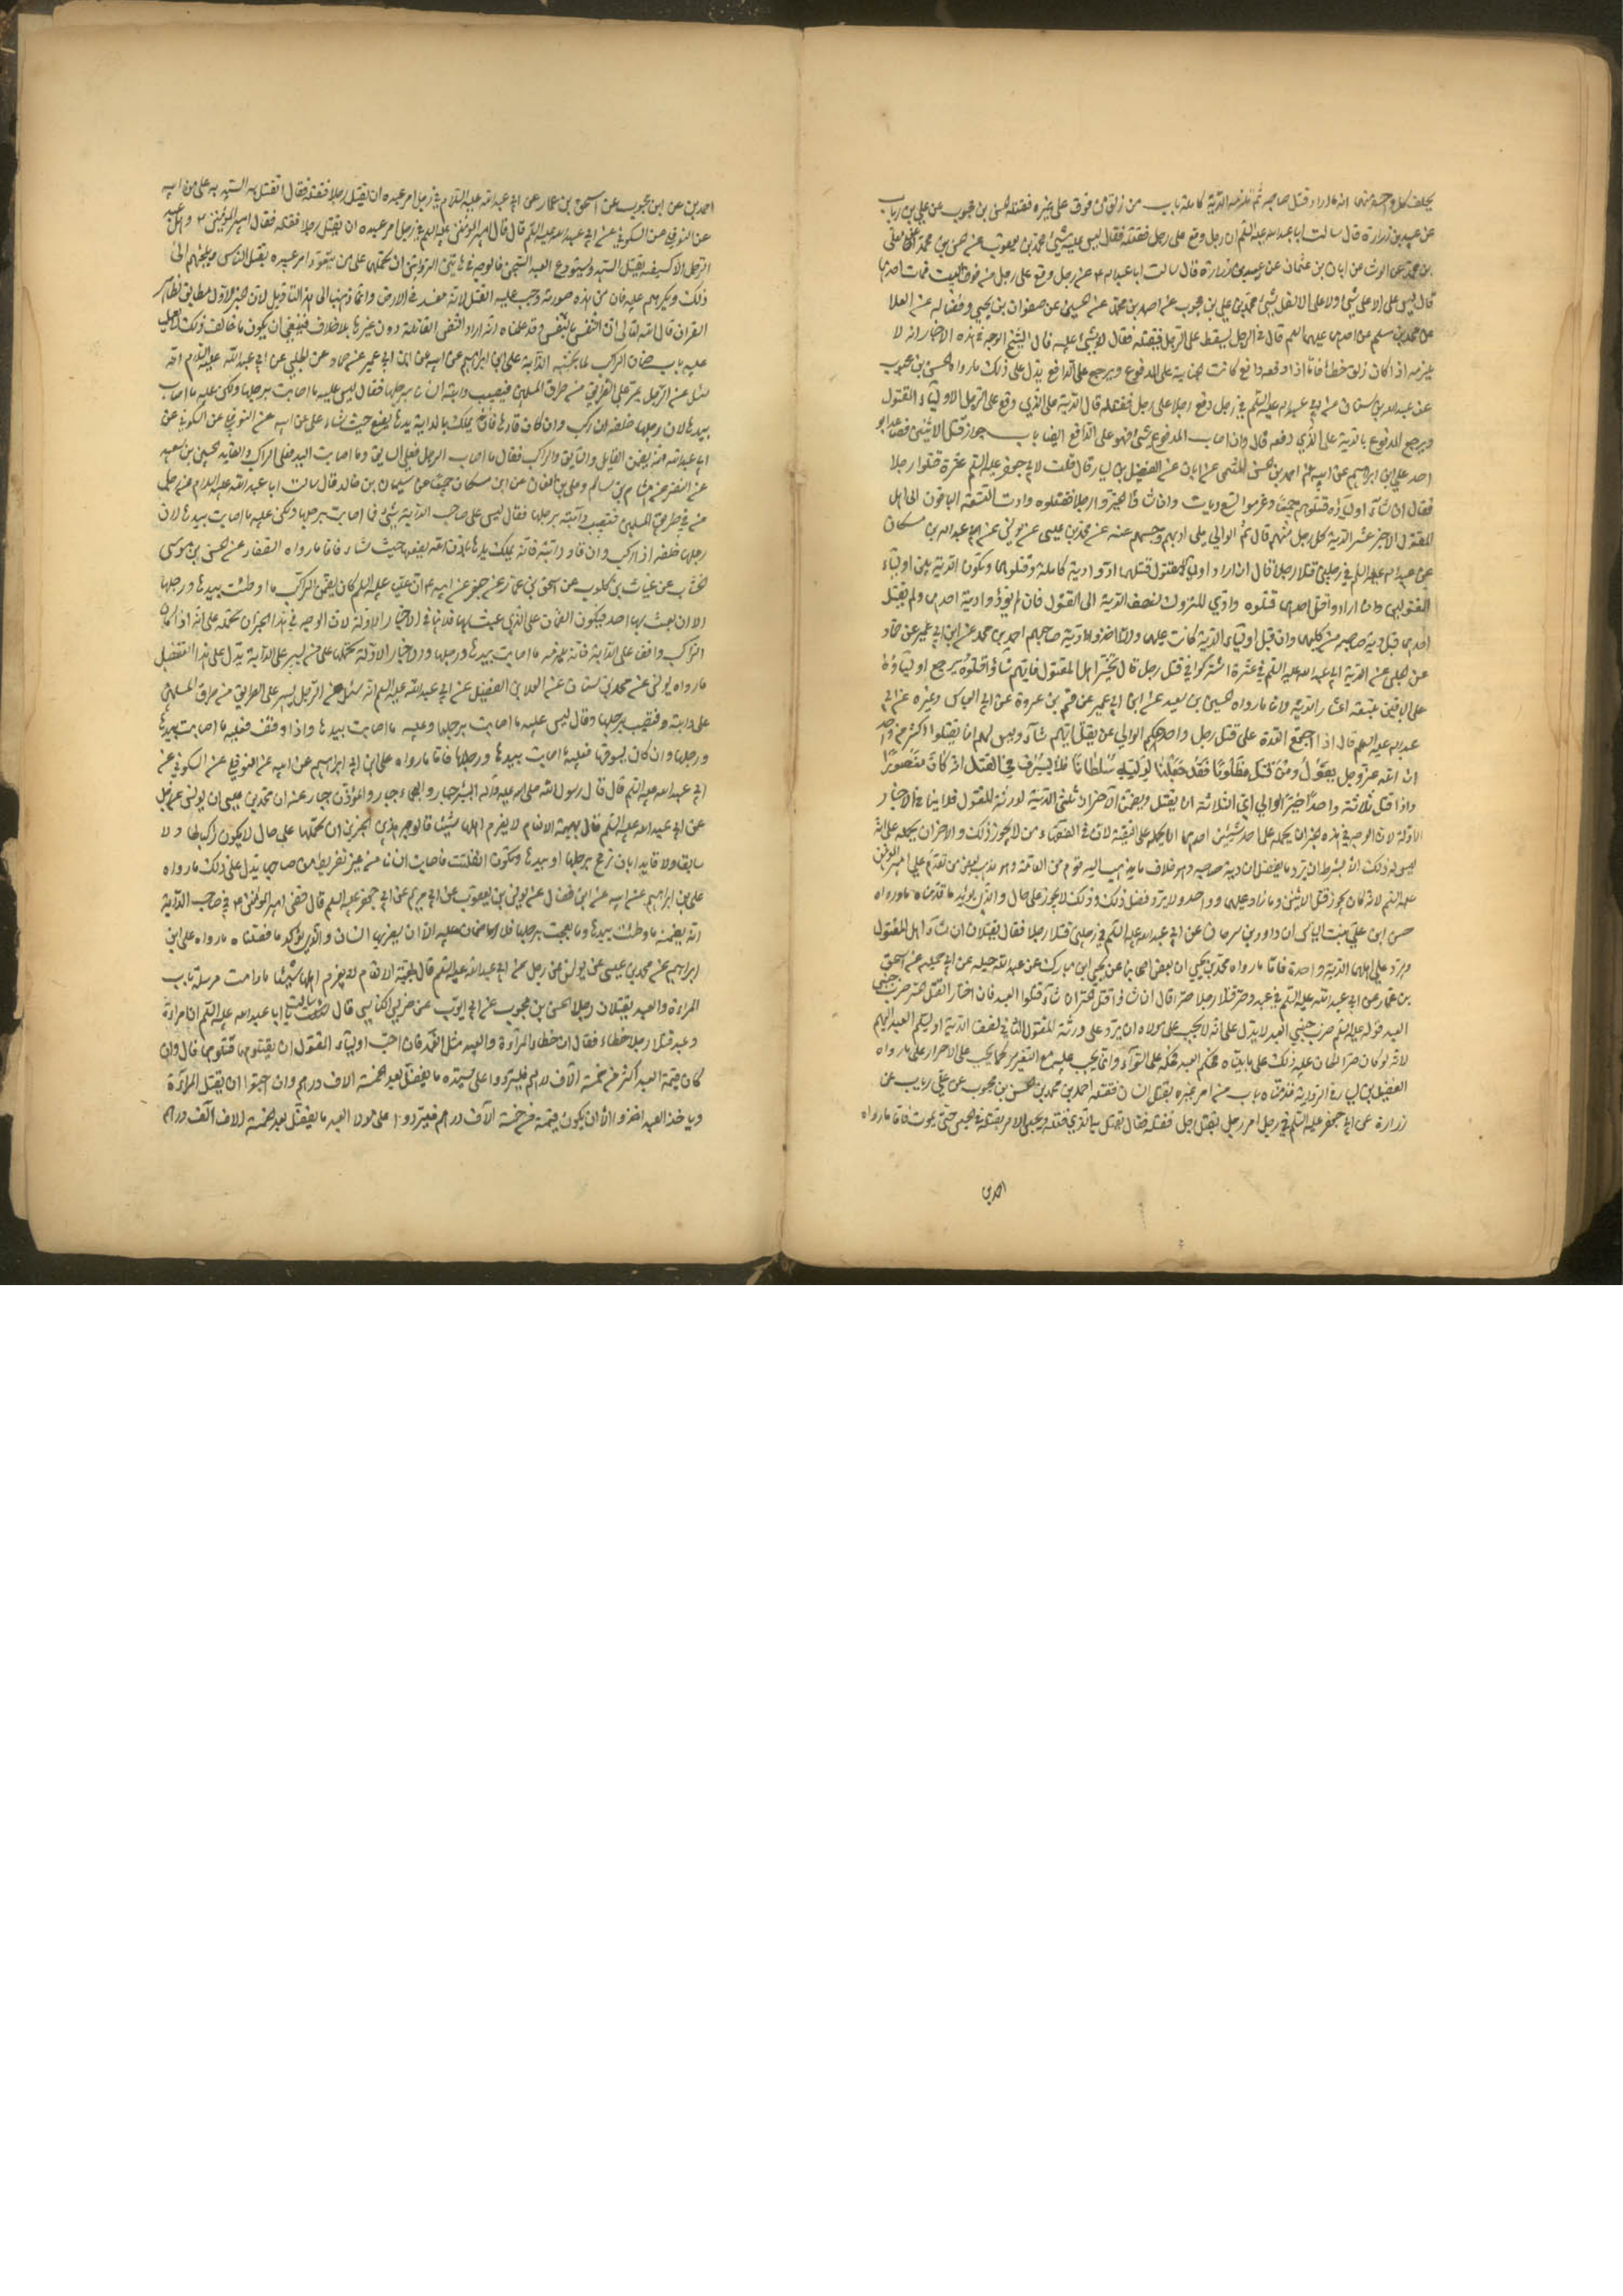 يحلف كل واحد منهما انه ما اراد قتل صاحبه ثم تلزمه الدية كاملة باب من زلق من فوق على غيره فقتله الحسن بن محبوب عن علي بن رياب
عن عبيد بن زرارة قال سالت ابا عبد الله عليه السلم ان رجل وقع على رجل فقتله فقال ليس عليه شيئ محمد بن يعقوب عن حسين بن محمد عن معلى
بن محمد عن الوشا عن ابان بن عثمان عن عبيد بن زرارة قال سالت ابا عبد الله ع عن رجل وقع على رجل من فوق البيت فمات احدهما
قال ليس على الاعلى شيئ ولا على الاسفل شيئ محمد بن علي بن محبوب عن احمد بن محمد عن الحسين عن صفوان بن يحيى وفضاله عن العلا
عن محمد بن مسلم عن احدهما عليهما السلم قال في الرجل يسقط على الرجل فيقتله فقال لا شيئ عليه قال الشيخ الوجه في هذه الاخبار انه لا
يلزمه اذا كان زلق خطأ فاما اذا دفعه دافع كانت الجناية على المدفوع ويرجع على الدافع يدل على ذلك ما رواه الحسن بن محبوب
عن عبد الله بن سنان عن ابي عبد الله عليه السلم في رجل دفع رجلا على رجل فقتله قال الدية على الذي وقع على الرجل لاولياء المقتول
ويرجع المدفوع بالدية على الذي دفعه قال وان اصاب المدفوع شيئ فهو على الدافع ايضا باب جواز قتل الاثنين فصاعدا بو
احد علي بن ابراهيم عن ابيه عن احمد بن الحسن الميثمي عن ابان عن الفضيل بن يسار قال قلت لابي جعفر عليه السلم عشرة قتلوا رجلا
فقال ان شاء اولياؤه قتلوهم جميعا وغرموا تسع ديات وان شاؤا تخيروا رجلا فقتلوه وادت التسعة الباقون الى اهل
المقتول الاخير عشر الدية كل رجل منهم قال ثم الوالي يلى ادبهم وحبسهم عنه عن محمد بن عيسى عن يونس عن عبد الله بن مسكان
عن ابي عبد الله عليه السلم في رجلين قتلا رجلا قال ان اراد اولياء المقتول قتلهما ادوا دية كاملة وقتلوهما وتكون الدية بين اولياء
المقتولين وان ارادوا قتل احدهما قتلوه وادي المتروك نصف الدية الى اهل المقتول فان لم يؤد دية احدهما ولم يقتل
احدهما قبل دية صاحبه من كليهما وان قبل اولياء الدية كانت عليهما
على الباقين بتسعة اعشار الدية فاما ما رواه الحسين بن سعيد عن ابن ابي عمير عن قسم بن عروة عن ابي العباس وغيره عن ابي
عبد الله عليه السلم قال اذا اجتمع العدة على قتل رجل واحد حكم الوالي ان يقتل ايهم شاء وليس لهم ان يقتلوا اكثر من واحد
ان الله عز وجل يقول ومن قتل مظلوما فقد جعلنا لوليه سلطانا فلا يسرف في القتل انه كان منصورا
واذا قتل ثلاثة واحدا خير الوالي اي الثلاثة ان يقتل ويضمن الاخران ثلثي الدية لورثة المقتول فلا ينافي الاخبار
الاولة لان الوجه في هذه الخبر ان يحمله على احد شيئين احدهما ان يحمله على التقية لان في الفقهاء من لا يجوز ذلك والاخر ان يحمله على انه
ليس له ذلك الا بشرط ان يرد ما يفضل ان دية صاحبه وهو خلاف ما يذهب اليه قوم من العامة وهو مذهب بعض من تقدم على امير المؤمنين
عليه السلم لانه كان يجوز قتل الاثنين وما زاد عليهما بواحد ولا يرد فضل ذلك وذلك لا يجوز على حال والذي يؤيد ما قدمناه ما رواه
حسن بن علي بن بنت الياس ان داود بن سرحان عن ابي عبد الله عليه السلم في رجلين قتلا رجلا فقال يقتلان ان شاء اهل المقتول
ويرد على اهلهما الدية واحدة فاما ما رواه محمد بن يحيى ان بعض اصحابنا عن يحيى ابن مبارك عن عبد الله بن جبلة عن ابي جميلة عن اسحق
بن عمار عن ابي عبد الله عليه السلم في عبد وحر قتلا رجلا حرا قال ان شاء قتل الحر وان شاء قتلوا العبد فان اختار القتل الحر ضرب جنبي
العبد قوله عليه السلم ضرب جنبي العبد لا يدل على انه لا يجب على مولاه ان يرد على ورثة المقتول الثاني نصف الدية او يسلم العبد اليهم
لانه لو كان حرا لكان عليه ذلك على ما بيناه فحكم العبد حكمه على السواء وانما يجب عليه مع التعزير كما يجب على الاحرار على ما رواه
الفضيل بن يسار في الرواية قدمناه باب من امر غيره بقتل انسان فقتله احمد بن محمد بن الحسن بن محبوب عن علي رياب عن
زرارة عن ابي جعفر عليه السلم في رجل امر رجل بقتل رجل فقتله فقال يقتل به الذي قتله ويحبس الامر بقتله في الحبس حتى يموت فاما ما رواه
احمد بن
احمد بن عن ابن محبوب عن اسحق بن عمار عن ابي عبد الله عليه السلام في رجل امر عبده ان يقتل رجلا فقتله فقال تقتل السيد به علي عن ابيه
عن النوفلي عن السكوني عن ابي عبد الله عليه السلم قال قال امير المؤمنين عليه السلم في رجل امر عبده ان يقتل رجلا فقتله فقال امير المؤمنين ع وهل عبد
الرجل الا كسيفه يقتل السيد ويستودع العبد السجن فالوجه في هاتين الروايتين ان تحملهما على من يتعود امر عبيده بقتل الناس ويلجئهم الى
ذلك ويكرههم عليه فان من هذه صورته وجب عليه القتل لانه مفسد في الارض وانما ذهبنا الى هذا التاويل لان الخبر الاول مطابق لظاهر
القران قال الله تعالى ان النفس بالنفس وقد علمنا انه اراد النفس القاتلة دون غيرها بلا خلاف فينبغي ان يكون ما خالف ذلك
عليه باب ضمان الراكب لما تجنيه الدابة علي بن ابراهيم عن ابيه عن ابن ابي عمير عن حماد عن الحلبي عن ابي عبد الله عليه السلام انه
سئل عن الرجل يمر على الطريق من طرق المسلمين فتصيب دابته انسانا برجلها فقال ليس عليه ما اصابت برجلها ولكن عليه ما اصابت
بيدها لان رجلها خلفه ان ركب وان كان قادها فانه يملك باذن الله يدها يضعها حيث شاء علي عن ابيه عن النوفلي عن السكوني عن
ابي عبد الله انه يضمن القايد والسايق والراكب فقال ما اصاب الرجل فعلى السايق وما اصابت اليد فعلى الراكب والقايد الحسين بن سعيد
عن النضر عن هشام بن سالم وعلي بن النعمان عن ابن مسكان جميعا عن سليمان بن خالد قال سالت ابا عبد الله عليه السلام عن رجل
مر في طريق المسلمين فتصيب دابته برجلها فقال ليس على صاحب الدابة شيئ مما اصابت برجلها ولكن عليه ما اصابت بيدها لان
رجلها خلفه اذا ركب وان قاد دابته فانه يملك يدها باذن الله يضعها حيث شاء فاما ما رواه الصفار عن الحسن بن موسى
الخشاب عن غياث بن كلوب عن اسحق بن عمار عن جعفر عن ابيه ع ان عليا عليه السلم كان يضمن الراكب ما اوطئت بيدها ورجلها
الا ان يعبث بها احد فيكون الضمان على الذي عبث بها فلا ينافي الاخبار الاولة لان الوجه في هذا الخبر ان نحمله على انه اذا كان
الراكب واقفا على الدابة فانه يلزمه ما اصابت بيدها ورجلها والاخبار الاولة نحملها على من يسير على الدابة يدل على هذا التفصيل
ما رواه يونس عن محمد بن سنان عن العلا بن الفضيل عن ابي عبد الله عليه السلم انه سئل عن الرجل يسير على الطريق من طرق المسلمين
على دابته فتصيب برجلها وقال ليس عليه ما اصابت برجلها وعليه ما اصابت بيدها واذا وقف فعليه ما اصابت بيدها
ورجلها وان كان يسوقها فعليه ما اصابت بيدها ورجلها فاما ما رواه علي بن ابراهيم عن ابيه عن النوفلي عن السكوني عن
ابي عبد الله عليه السلم قال قال رسول الله صلى الله عليه وآله البئر جبار والعجماء جبار والمعدن جبار عنه ان محمد بن عيسى ان يونس عن رجل
عن ابي عبد الله عليه السلم قال بهيمة الانعام لا يغرم اهلها شيئا فالوجه في هذين الخبرين ان نحملها على حال لا يكون راكبها ولا
سايقا ولا قايدا بان ترمح برجلها او بيدها وتكون انفلتت فاصابت انسانا من غير تفريط من صاحبها يدل على ذلك ما رواه
علي بن ابراهيم عن ابيه عن ابن فضال عن يونس بن يعقوب عن ابي مريم عن ابي جعفر عليه السلم قال قضى امير المؤمنين ع في صاحب الدابة
انه يضمن ما وطئت بيدها وما بعجت برجلها فلا ضمان عليه الا ان يضربها انسان والذي يؤكد ما فصلناه ما رواه علي بن
ابراهيم عن محمد بن عيسى عن يونس عن رجل عن ابي عبد الله عليه السلم قال بهيمة الانعام لا يغرم اهلها شيئا ما دامت مرسلة باب
المراءة والعبد يقتلان رجلا الحسن بن محبوب عن ابي ايوب عن ضريس الكناسي قال سالت ابا عبد الله عليه السلم ان امراءة
وعبد قتلا رجلا خطاء فقال ان خطاء المراءة والعبد مثل العمد فان احب اولياء المقتول ان يقتلوهما قتلوهما قال وان
كان قيمة العبد اكثر من خمسة آلاف درهم فليردوا على سيده ما يفضل بعد الخمسة الاف درهم وان احبوا ان يقتل المراءة
وياخذ العبد اخذوا الا ان يكون قيمته من خمسة آلاف درهم فيردوا على مولا العبد ما يفضل بعد الخمسة الاف درهم